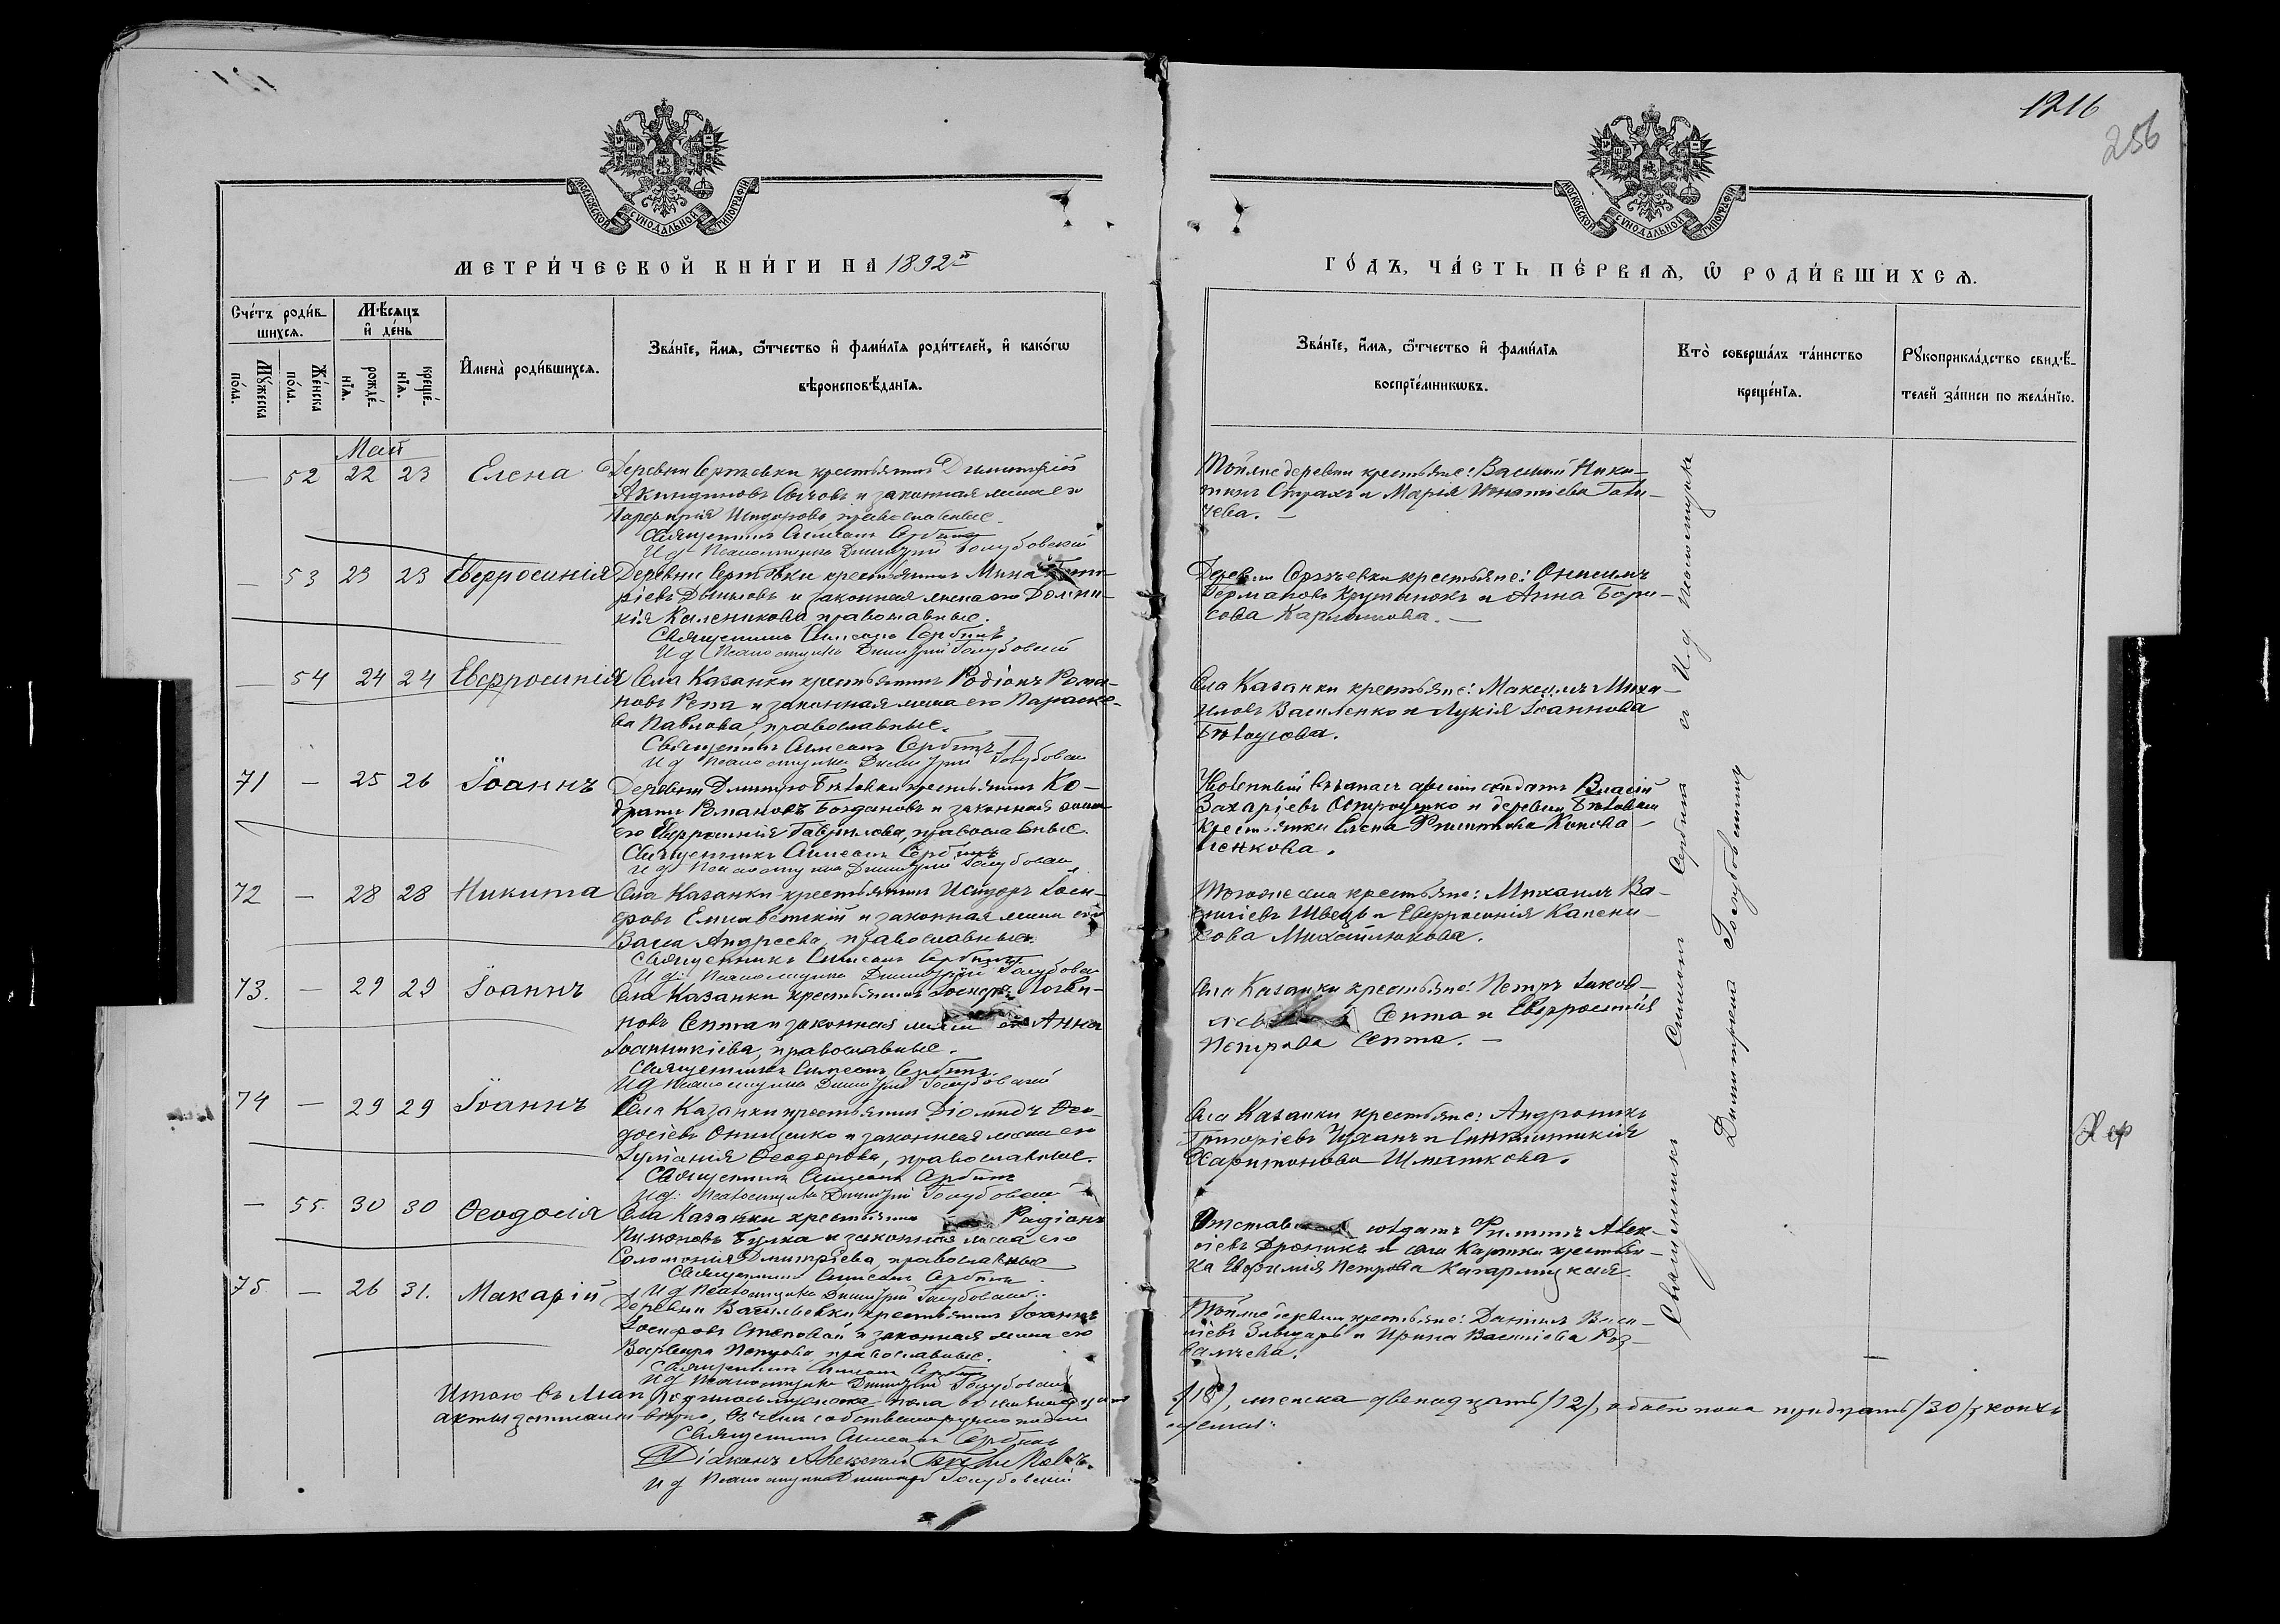 1216
256
МОСКОВСКОЙ СѴНОДАЛЬНОЙ ТИПОГРАФІИ
МОСКОВСКОЙ СѴНОДАЛЬНОЙ ТИПОГРАФІИ
МЕТРИ́ЧЕСКОЙ КНИ́ГИ НА 1892й
ГО́ДЪ, ЧА́СТЬ ПЕ́РВАѦ, Ѡ҆ РОДИ́ВШИХСѦ.
Сче́тъ роди́вшихсѧ.
Мꙋ́жеска по́ла.
Же́нска по́ла.
Мѣ́сѧцъ и҆ де́нь
рожде́нїѧ.
креще́нїѧ.
И҆мена̀ роди́вшихсѧ.
Зва́нїе, и҆́мѧ, ѻ҆́тчество и҆ фами́лїѧ роди́телей, и҆ како́гѡ
вѣроисповѣ́данїѧ.
Зва́нїе, и҆́мѧ, ѻ҆́тчество и҆ фами́лїѧ
воспрїе́мникѡвъ.
Кто̀ соверша́лъ та́инство
креще́нїѧ.
Рꙋкоприкла́дство свидѣ́-
телей за́писи по жела́нїю.
Май
— 52 22 23 Елена Деревни Сергѣевки крестьянинъ Димитрій
Акиндиновъ Сычовъ и законная жена его
Парфирія Исидорова, православные.
Священникъ Симеонъ Сербинъ
И д Псаломщика Димитрій Голубовскій
Тойже деревни крестьяне: Василій Ники-
тинъ Страхъ и Марія Игнатіева
чева. —
— 53 23 23 Евфросинія Деревни Сергѣевки крестьянинъ Мина
ріевъ и законная жена его Домни-
кія Каленикова православные.
Священникъ Симеонъ Сербинъ
И д Псаломщика Димитрій Голубовскій
Деревни Сергѣевки крестьяне: Онисимъ
Германовъ и Анна Бори-
сова
— 54 24 24 Евфросинія Села Казанки крестьянинъ Родіонъ Рома-
новъ Репа и законная жена его Параске-
ва Павлова, православные.
Священникъ Симеонъ Сербинъ
И д Псаломщика Димитрій Голубовскій
Села Казанки крестьяне: Максимъ Миха-
иловъ Василенко и Лукія Іоаннова
Бѣлоусова.
71 — 25 26 Іоаннъ Деревни Дмитро Бѣловки крестьянинъ Ко-
дратъ Романовъ Богдановъ и законная жена
его Евфросинія Гавріилова, православные.
Священникъ Симеонъ Сербинъ
И д Псаломщика Димитрій Голубовскій
Уволенный въ запасъ арміи солдатъ Власій
Захаріевъ и деревни Бѣловки
крестьянка Елена Филиппова Конова-
ленкова.
72 — 28 28 Никита Села Казанки крестьянинъ Исидоръ Іоси-
фовъ Елисаветскій и законная жена его
Васса Андреева, православные.
Священникъ Симеонъ Сербинъ
И д: Псаломщика Димитрій Голубовскій
Тогоже села крестьяне: Михаилъ Ва-
силіевъ Швецъ и Евфросинія Калени-
кова Михайлюкова.
73. — 29 29 Іоаннъ Села Казанки крестьянинъ Іосифъ Логви-
новъ Септа и законная жена его Анна
Іоанникіева, православные.
Священникъ Симеонъ Сербинъ
И д Псаломщика Димитрій Голубовскій
Села Казанки крестьяне: Петръ Іаков-
левъ Септа и Евфросинія
Петрова Септа. —
74 — 29 29 Іоаннъ Села Казанки крестьянинъ Діомидъ Ѳео-
досіевъ Онищенко и законная жена его
Іуліанія Ѳеодорова, православные.
Священникъ Симеонъ Сербинъ
И д: Псаломщика Димитрій Голубовскій
Села Казанки крестьяне: Андроникъ
Григоріевъ Чуханъ и Синклитикія
Харитонова Шматкова.
— 55. 30 30 Ѳеодосія Села Казанки крестьянинъ Родіонъ
Пимоновъ Булка и законная жена его
Соломонія Дмитріева, православные
Священникъ Симеонъ Сербинъ
И д Псаломщика Димитрій Голубовскій
Отставной солдатъ Филиппъ Алек-
сіевъ Дроникъ и села крестьян-
ка Евфимія Петрова Кагарлицкая.
75. — 26 31. Макарій Деревни Васильевки крестьянинъ Іоаннъ
Іосифовъ Степовой и законная жена его
Варвара Петрова православные.
Священникъ Симеонъ Сербинъ
И д Псаломщика Димитрій Голубовскій
Тойже деревни крестьяне: Даніилъ Васи-
ліевъ и Ирина Василіева
Священникъ Симеонъ Сербинъ съ И.д псаломщика
Димитріемъ Голубовскимъ
Хер
Итого въ Маѣ родилось мужеска пола восемнадцать /18/, женска двенадцать /12/, а обоего пола тридцать /30/, коихъ
акты записаны вѣрно, въ чемъ собственноручно подпи-
суемся:
Священникъ Симеонъ Сербинъ
Діаконъ Алексѣй
И д Псаломщика Димитрій Голубовскій